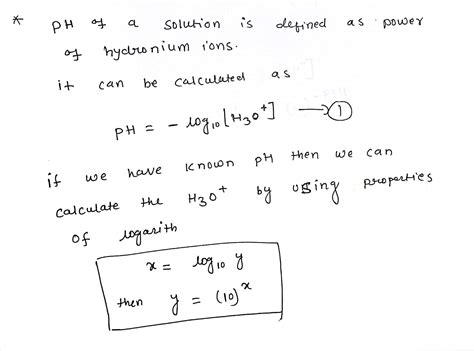 * pH of a solution is defined as power
of hydronium ions.
it can be calculated as
pH = - log₁₀ [H₃O⁺] → ①
if we have known pH then we can
calculate the H₃O⁺ by using properties
of logarith
x = log₁₀ y
then y = (10)ˣ